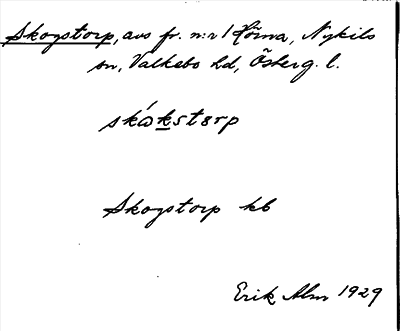 Skogstorp, avs fr. n:r 1 Körna, Nykils
sn, Valkebo hd, Österg. l.
skάkstɵrp
Skogstorp kb
Erik Alm 1929